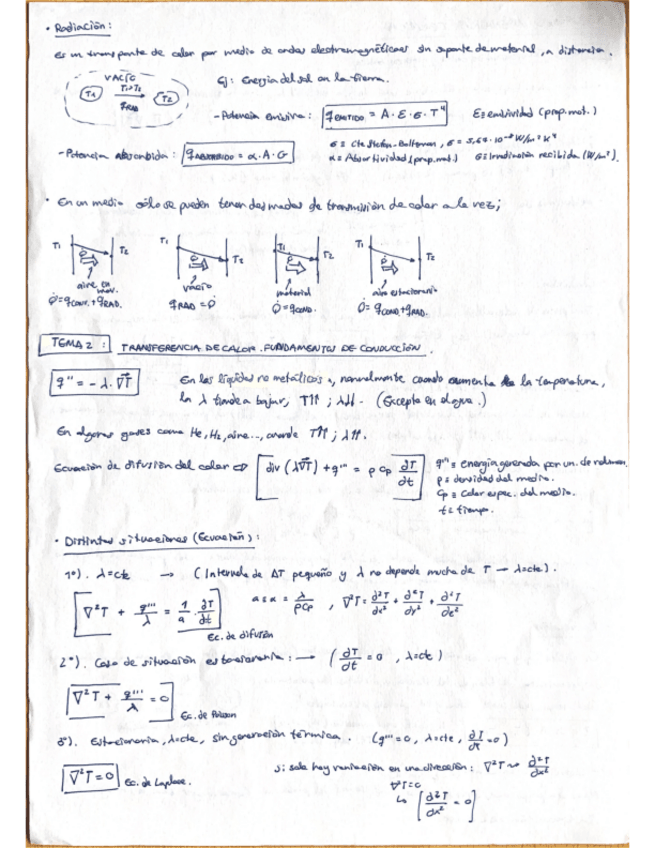 · Radiación:
Es un transporte de calor por medio de ondas electromagnéticas sin soporte de material, a distancia.
VACÍO
T1 T1>T2 T2
q_RAD
Ej: Energía del sol en la tierra.
- Potencia emisiva: q_EMITIDO = A · ε · σ · T⁴ ε≡ emisividad (prop. mat.)
σ ≡ Cte Stefan-Boltzman, σ = 5,67·10⁻⁸ W/m² K⁴
- Potencia absorbida: q_ABSORBIDO = α · A · G α ≡ Absortividad (prop. mat.) G≡ Irradiación recibida (W/m²).
· En un medio sólo se pueden tener dos modos de transmisión de calor a la vez;
T1 T2 T1 T2 T1 T2 T1 T2
aire en mov. vacío material aire estacionario
Q̇ = q_CONV. + q_RAD. q_RAD = Q̇ Q̇ = q_COND. Q̇ = q_COND + q_RAD.
TEMA 2: TRANSFERENCIA DE CALOR. FUNDAMENTOS DE CONDUCCIÓN.
q'' = - λ · ∇T En los líquidos no metálicos, normalmente cuando aumenta la temperatura,
la λ tiende a bajar, T↑↑; λ↓↓. (Excepto en el agua.)
En algunos gases como He, H2, aire..., cuando T↑↑; λ↑↑.
Ecuación de difusión del calor ⇒ div (λ∇T) + q''' = ρ cp ∂T/∂t q''' ≡ energía generada por un. de volumen.
ρ ≡ densidad del medio.
Cp ≡ Calor espec. del medio.
t ≡ tiempo.
· Distintas situaciones (Ecuación):
1º). λ=cte → (Intervalo de ΔT pequeño y λ no depende mucho de T → λ=cte).
∇²T + q'''/λ = 1/a · ∂T/∂t a ≡ α = λ/ρCp , ∇²T = ∂²T/∂x² + ∂²T/∂y² + ∂²T/∂z²
Ec. de difusión
2º). Caso de situación estacionaria: → (∂T/∂t = 0, λ=cte)
∇²T + q'''/λ = 0 Ec. de Poisson
3º). Estacionaria, λ=cte, sin generación térmica. (q'''=0, λ=cte, ∂T/∂t=0)
∇²T = 0 Ec. de Laplace. Si solo hay variación en una dirección: ∇²T → ∂²T/∂x²
∇²T=0
↳ [∂²T/∂x² = 0]